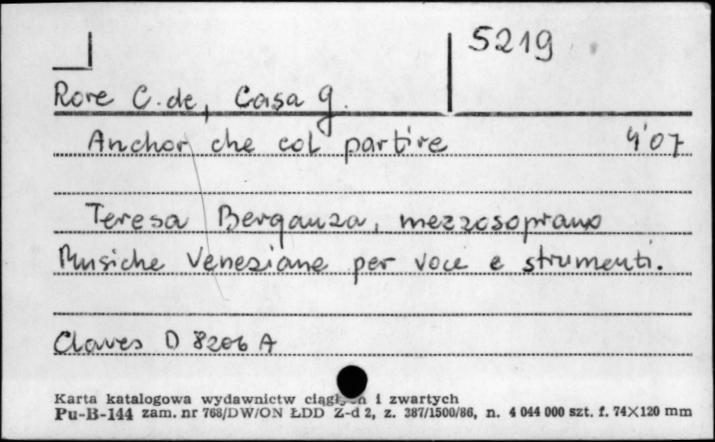 5219
Rore C. de, Casa g.
Anchor che col partire 4'07
Teresa Berganza, mezzosoprano
Musiche Veneziane per voce e strumenti.
Claves D 8206 A
Karta katalogowa wydawnictw i zwartych
Pu-B-144 zam. nr 768/DW/ON ŁDD Z-d 2, z. 387/1500/86, n. 4 044 000 szt. f. 74×120 mm